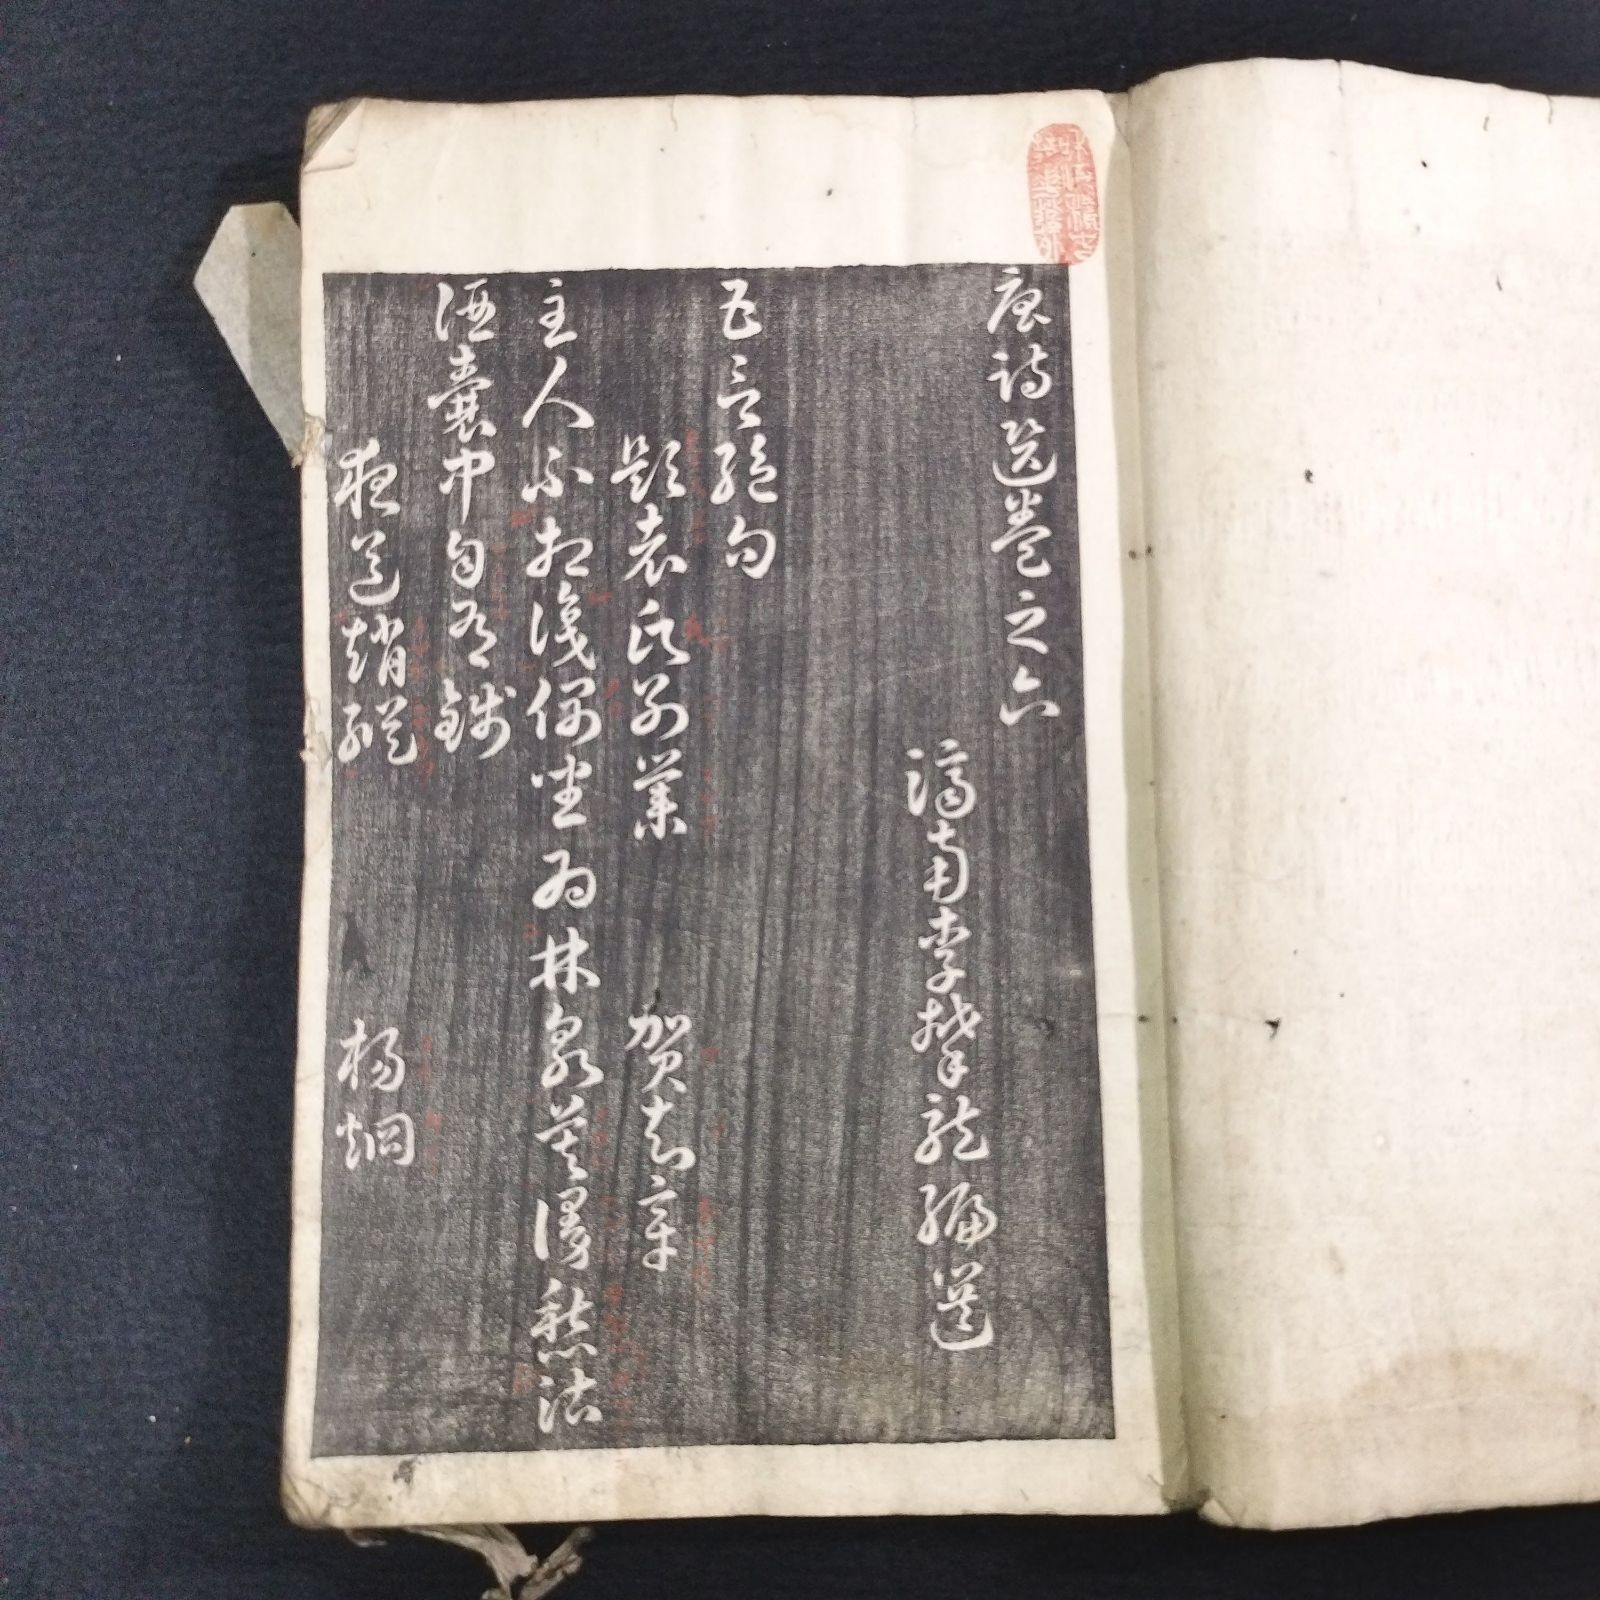 唐詩選卷之六
濟南李攀龍編選
五言絕句
題袁氏別業
賀知章
主人不相識偶坐爲林泉莫謾愁沽
酒囊中自有錢
夜送趙縱
楊烱